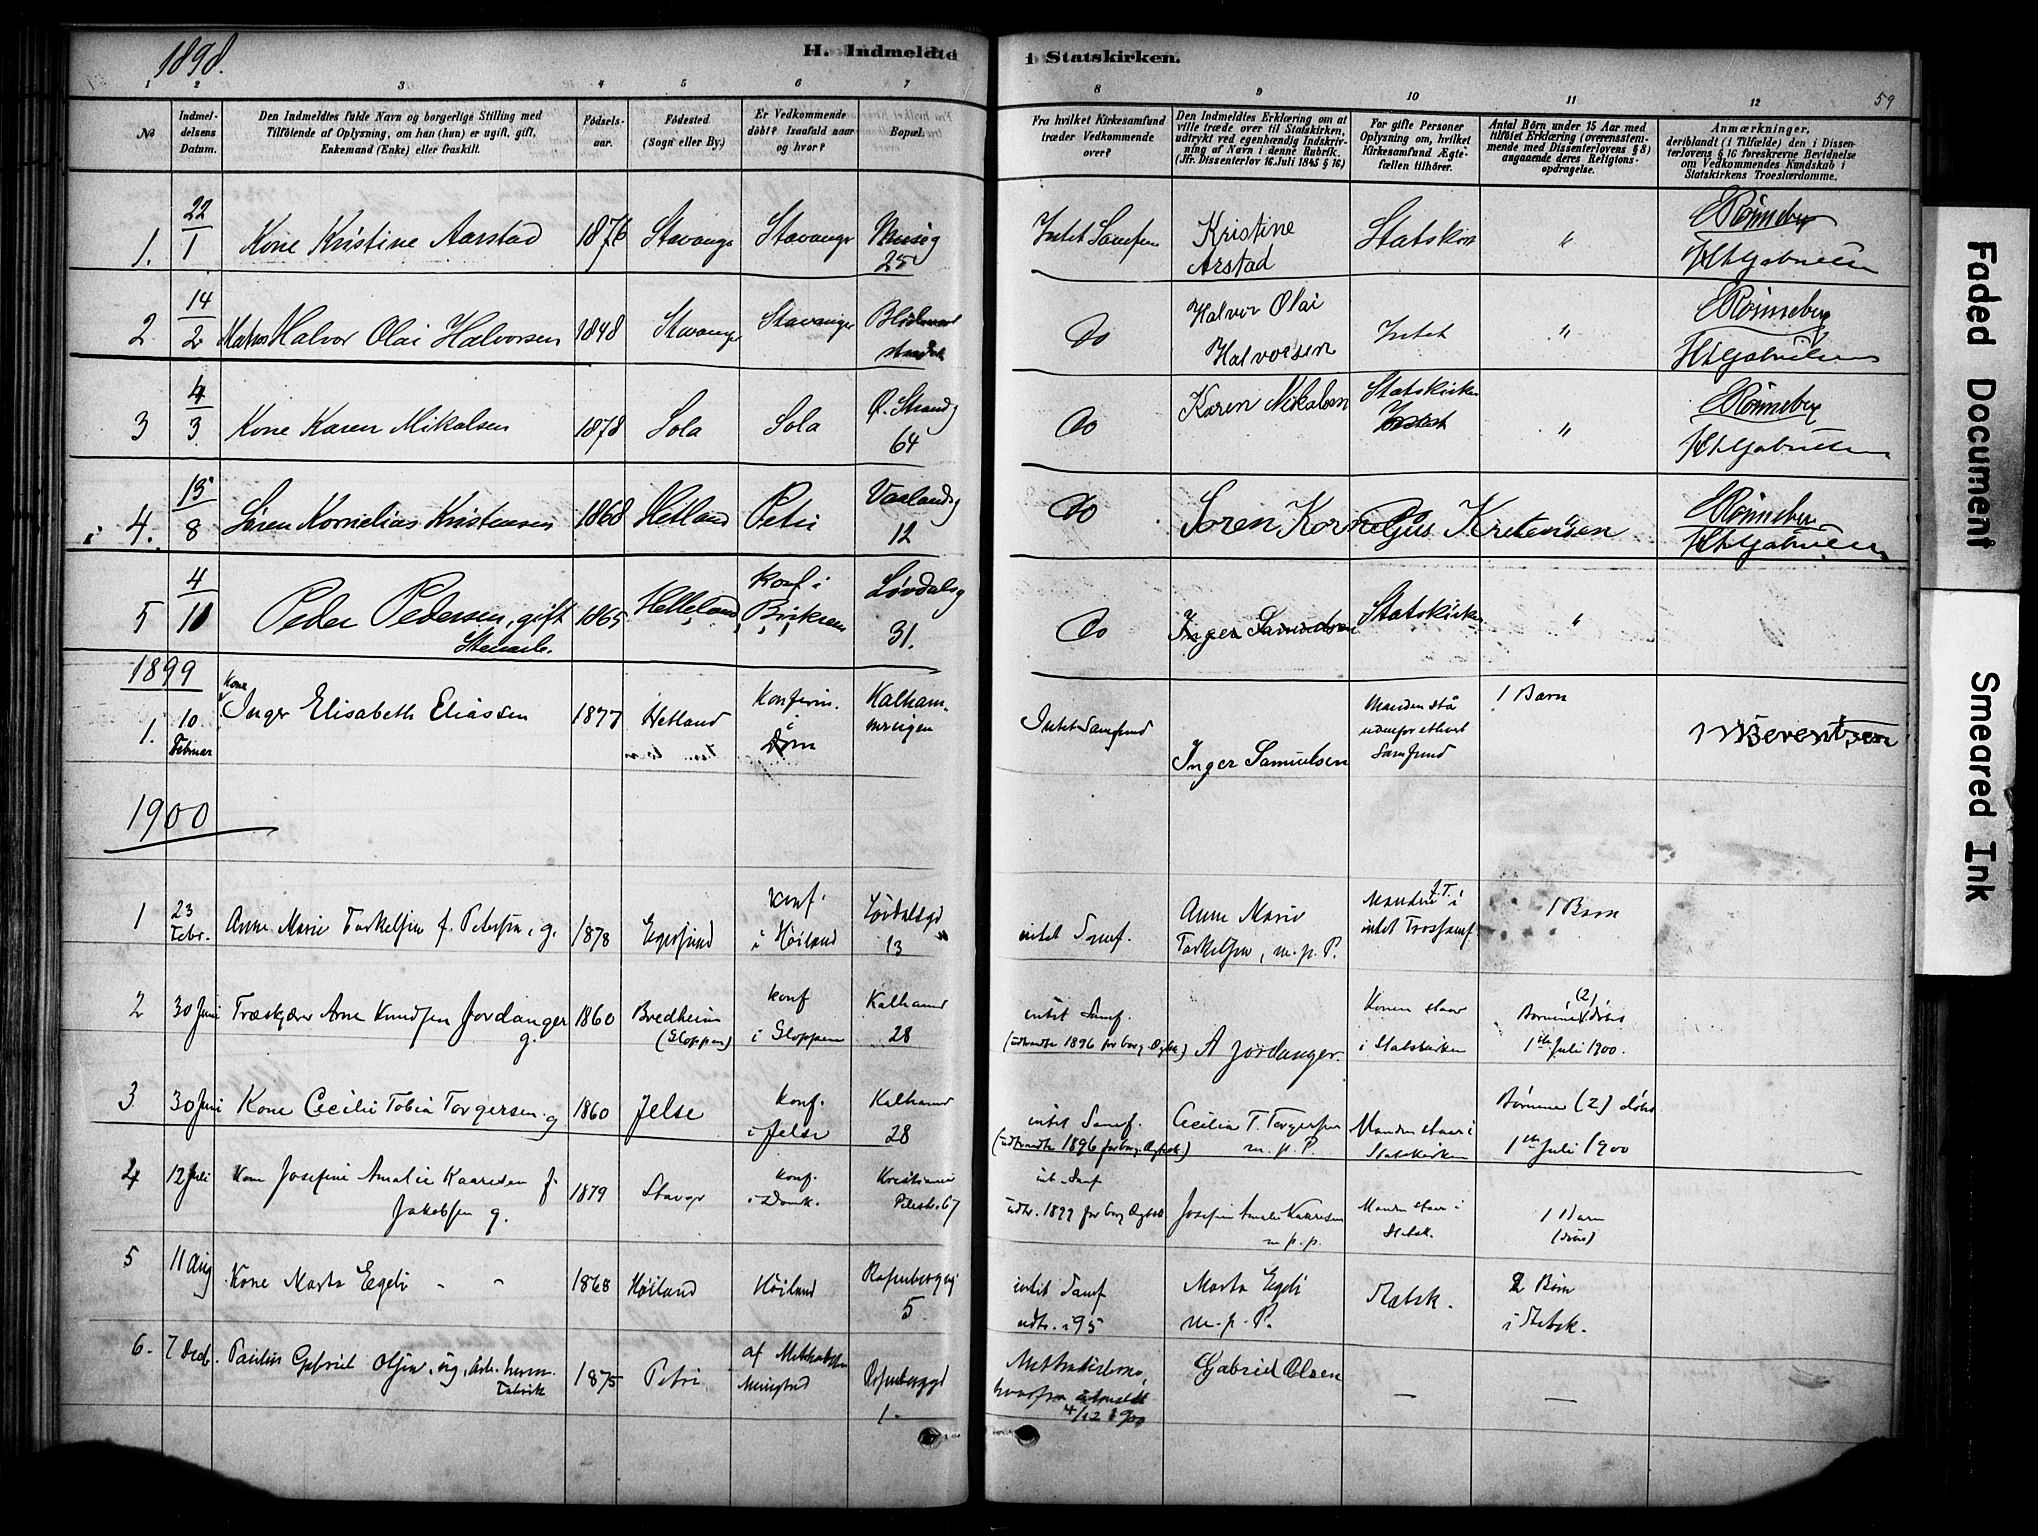 1898.
H. Indmeldte i Statskirken.
59
1 2 3 4 5 6 7 8 9 10 11 12
No
Indmel-
delsens
Datum.
Den Indmeldtes fulde Navn og borgerlige Stilling med
Tilföiende af Oplysning, om han (hun) er ugift, gift,
Enkemand (Enke) eller fraskilt.
Födsels-
aar.
Födested
(Sogn eller By.)
Er Vedkommende
döbt? Isaafald naar
og hvor?
Bopæl.
Fra hvilket Kirkesamfund
træder Vedkommende
over?
Den Indmeldtes Erklæring om at
ville træde over til Statskirken,
udtrykt ved egenhændig Indskriv-
ning af Navn i denne Rubrik.
(Jfr. Dissenterlov 16. Juli 1845 § 16.)
For gifte Personer
Oplysning om, hvilket
Kirkesamfund Ægte-
fællen tilhörer.
Antal Börn under 15 Aar med
tilföiet Erklæring (overensstem-
mende med Dissenterlovens § 8)
angaaende deres Religions-
opdragelse.
Anmærkninger,
deriblandt (i Tilfælde) den i Dissen-
terlovens § 16 foreskrevne Bevidnelse
om Vedkommendes Kundskab i
Statskirkens Troeslærdomme.
1. 22/1 Kone Kristine Aarstad 1876 Stavanger Stavanger Muség 25 Intet Samfun Kristine Arstad Statskirk " Rönneberg HAGabrielsen
2 14/2 Matros Halvor Olai Halvorsen 1848 Stavanger Stavanger Do Halvor Olai Halvorsen Intet " Rönneberg HAGabrielsen
3 4/3 Kone Karen Mikalsen 1878 Sola Sola Ø. Strandg 64 Do Karen Mikalsen Statskirke " Rönneberg HAGabrielsen
4. 15/8 Sören Kornelias Kristensen 1868 Hetland Petri Vaalandsg 12 Do Soren Kornelius Kristensen Rönneberg HAGabrielsen
5 4/10 Peder Pedersen, gift Stenarb. 1865 Helleland, konf i Birkrem Løvdalsg 31. Do Inger Samuelsen Statskirke "
1899
1. 10 Februar Kone Inger Elisabeth Eliassen 1877 Hetland Konfirm. i Dom Kalham- Intet Samfund Inger Samuelsen Manden stå udenfor ethvert Samfund 1 Barn Berentsen
1900
1 23 Febr. Anne Marie Torkelsen f. Petersen, g. 1878 Egersund konf. i Höiland Lövdalsgd 13 intet Samf. Anne Marie Torkelsen, m. p. P. Manden f.T. i intet Trossamf. 1 Barn
2 30 Juni Træskjærer Arne Knudsen Jordanger g. 1860 Bredheim (Gloppen) konf i Gloppen Kalhamd 28 intet Samf. (udtraadte 1896 for borg Ægtesk.) A Jordanger. Konen staar i Statskirken Börnene (2) döbes 1ste Juli 1900.
3 30 Juni Kone Cecilie Tobia Torgersen. g 1860 Jelse konf. i Jelse Kalhamd 28 intet Samf. (udtraadte 1896 for borg. Ægtesk.) Cecilia T. Torgersen m. p. P. Manden staar i Statskirken Börnene (2) döbes 1ste Juli 1900
4 12 Juli Kone Josefine Amalie Kaaresen f. Jakobsen g. 1879 Stavgr konf. i Domk. Kristianis Pilestr. 67 int. Samf udtr. 1899 for borg Ægtesk. Josefine Amalie Kaaresen m. p. p. Manden staar i Statsk. 1 Barn (döbes)
5 11 Aug Kone Marta Egeli " " 1868 Höiland Höiland Rosenberggd 5 intet Samf udtr. i 95 Marta Egeli m. p. P. Statsk. 2 Börn i Statsk.
6. 7 Decb. Paulus Gabriel Olsen, ug, arb. herm. fabrik 1875 Petri af Methodist- Menighed Rosenberggd 1 Methodisterne, hvorfra udmeldt 4/12 1900 Gabriel Olsen — —
Faded Document
Smeared Ink